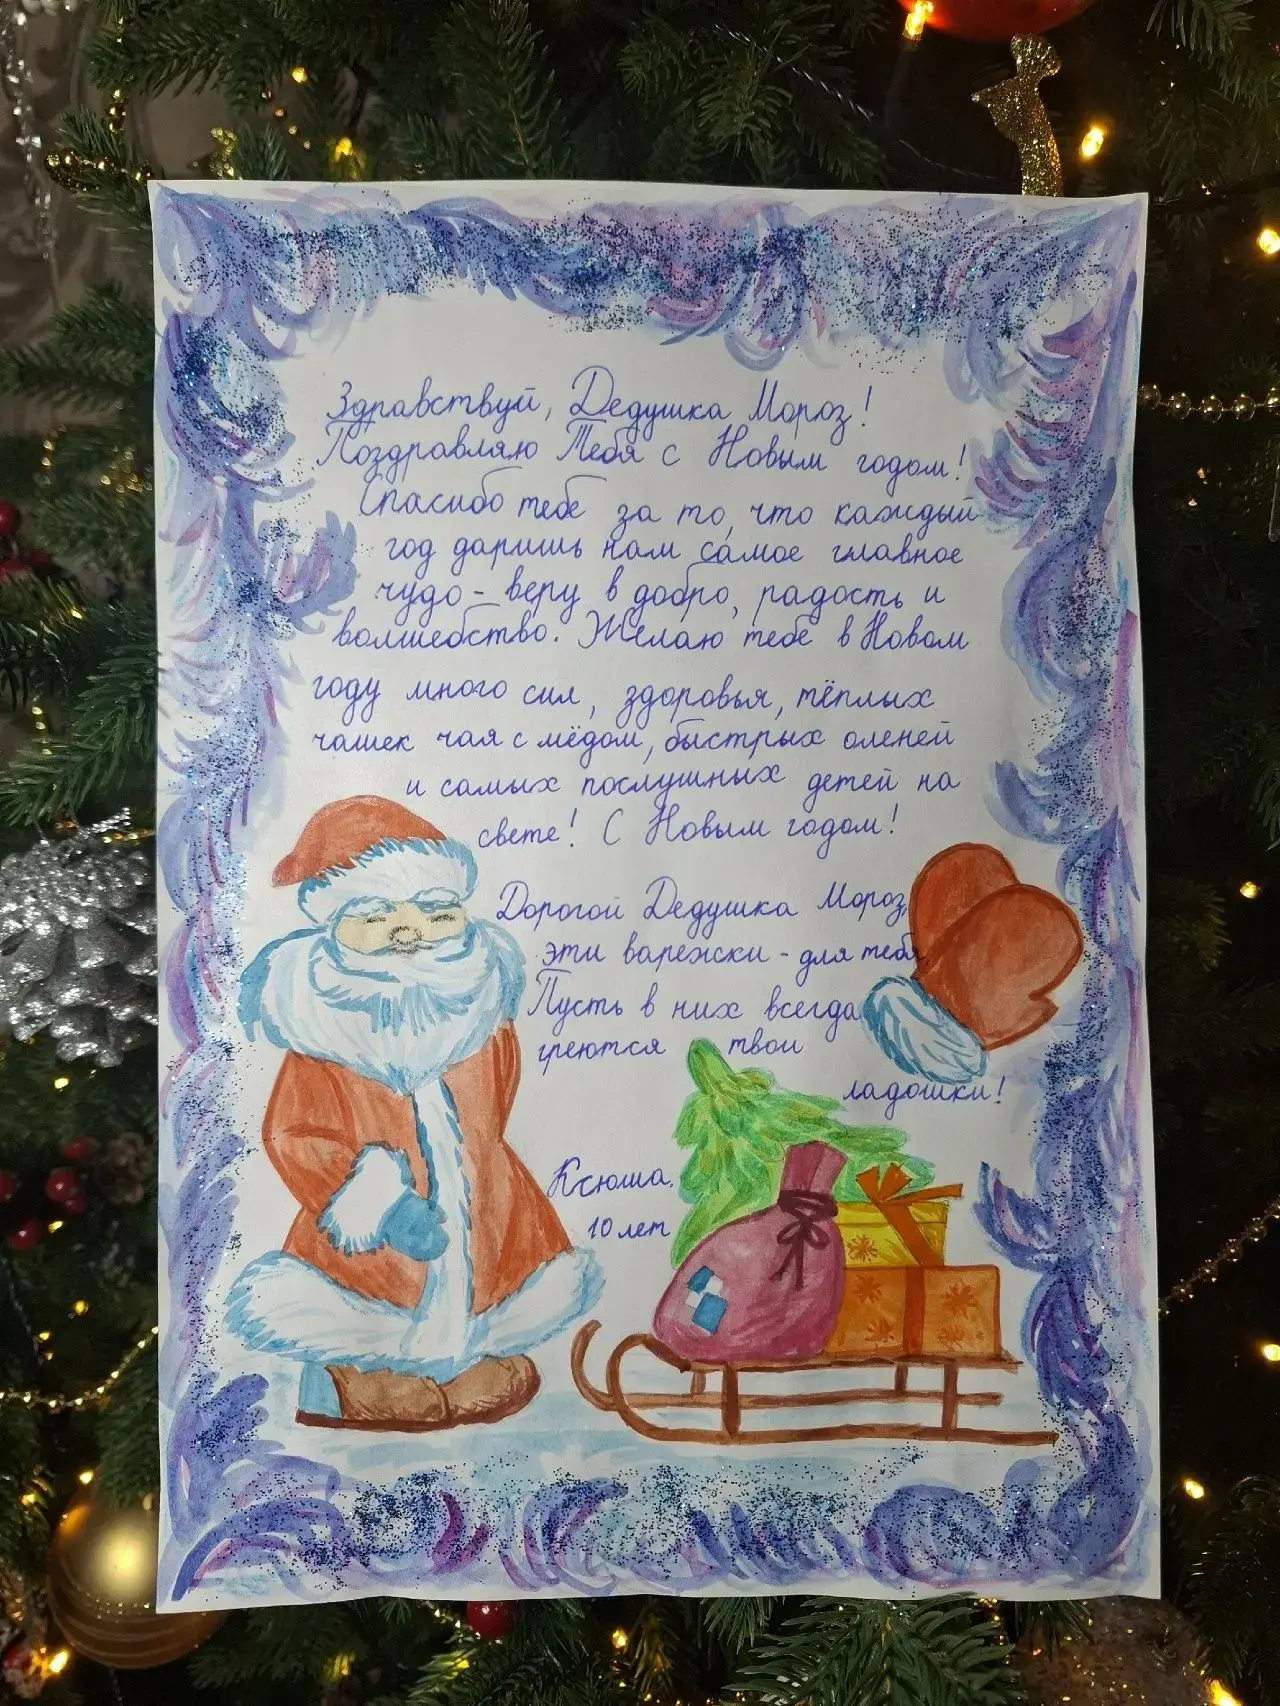 Здравствуй, Дедушка Мороз!
Поздравляю Тебя с Новым годом!
Спасибо тебе за то, что каждый
год даришь нам самое главное
чудо - веру в добро, радость и
волшебство. Желаю тебе в Новом
году много сил, здоровья, тёплых
чашек чая с мёдом, быстрых оленей
и самых послушных детей на
свете! С Новым годом!
Дорогой Дедушка Мороз,
эти варежки - для тебя.
Пусть в них всегда
греются твои
ладошки!
Ксюша.
10 лет